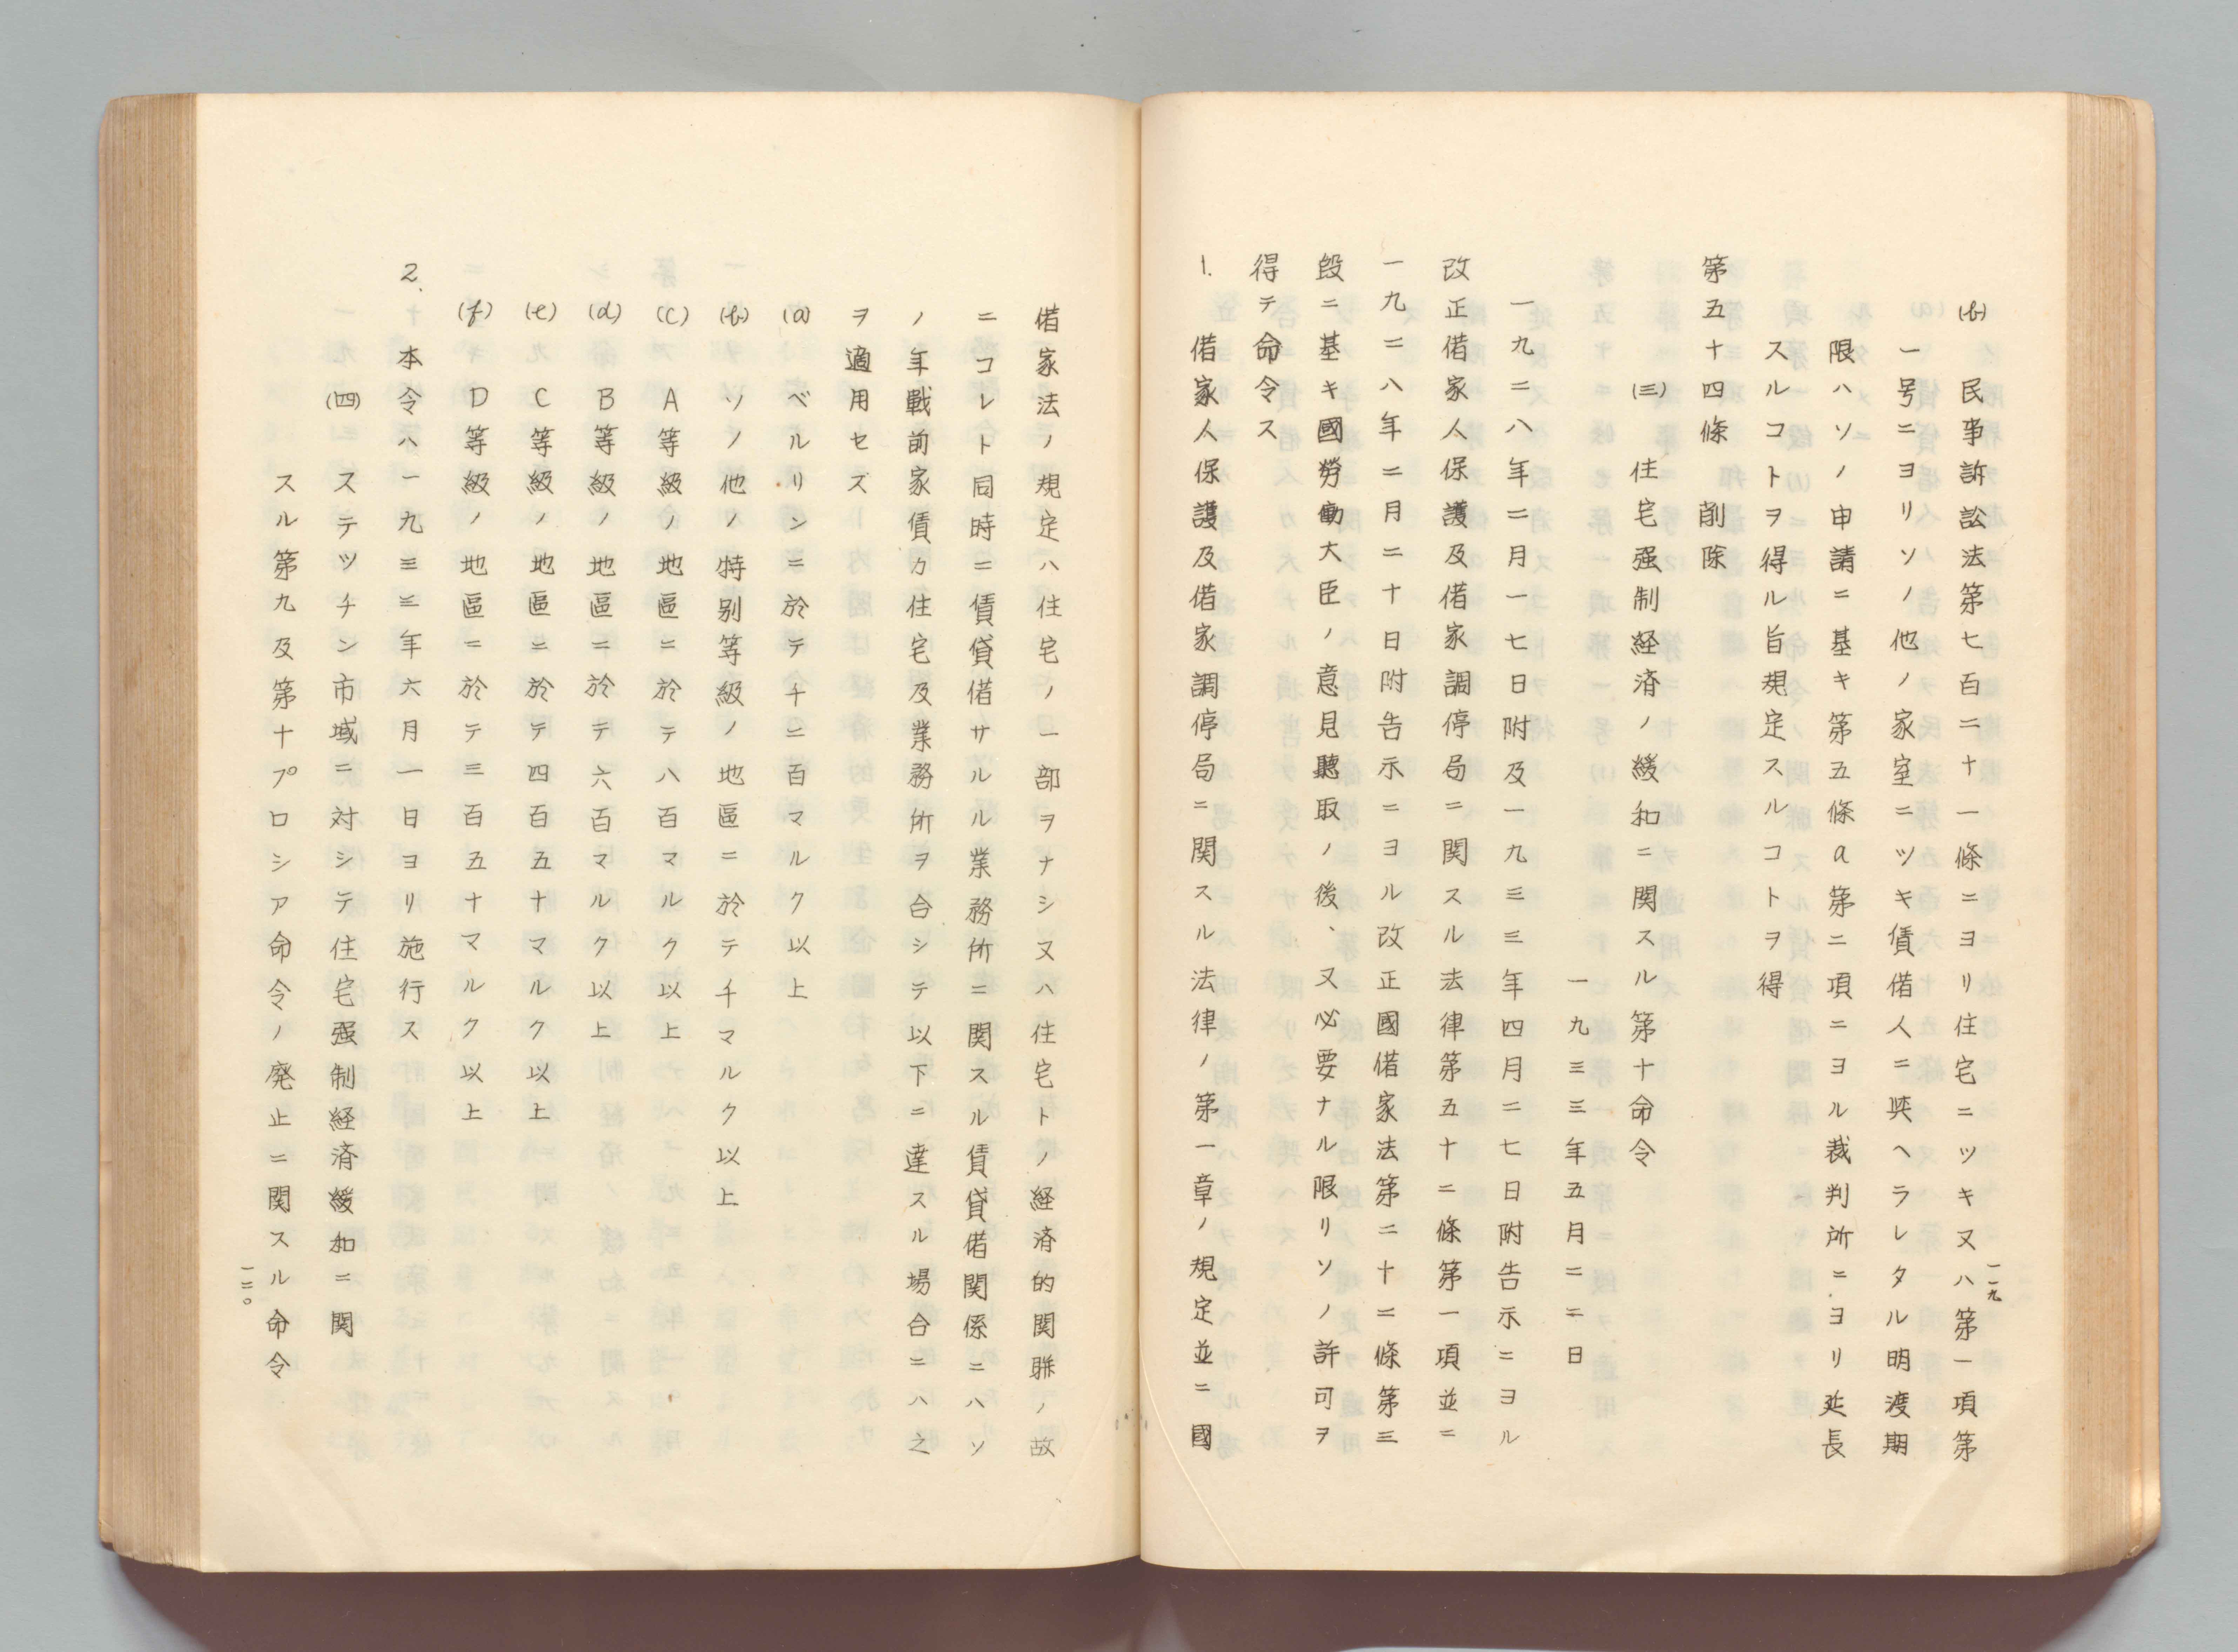 (b) 民事訴訟法第七百二十一條ニヨリ住宅ニツキ又ハ第一項第
一号ニヨリソノ他ノ家室ニツキ賃借人ニ與ヘラレタル明渡期
限ハソノ申請ニ基キ第五條a第二項ニヨル裁判所ニヨリ延長
スルコトヲ得ル旨規定スルコトヲ得
第五十四條 削除
(三) 住宅强制経済ノ緩和ニ関スル第十命令
一九三三年五月二二日
一九二八年二月一七日附及一九三三年四月二七日附告示ニヨル
改正借家人保護及借家調停局ニ関スル法律第五十二條第一項並ニ
一九二八年二月二十日附告示ニヨル改正國借家法第二十二條第三
段ニ基キ國勞働大臣ノ意見聽取ノ後、又必要ナル限リソノ許可ヲ
得テ命令ス
1. 借家人保護及借家調停局ニ関スル法律ノ第一章ノ規定並ニ國
一一九
借家法ノ規定ハ住宅ノ一部ヲナシ又ハ住宅トノ経済的関聨ノ故
ニコレト同時ニ賃貸借サルル業務所ニ関スル賃貸借関係ニハソ
ノ年戰前家賃カ住宅及業務所ヲ合シテ以下ニ達スル場合ニハ之
ヲ適用セズ
(a) ベルリンニ於テ千二百マルク以上
(b) ソノ他ノ特別等級ノ地區ニ於テ千マルク以上
(c) A等級ノ地區ニ於テ八百マルク以上
(d) B等級ノ地區ニ於テ六百マルク以上
(e) C等級ノ地區ニ於テ四百五十マルク以上
(f) D等級ノ地區ニ於テ三百五十マルク以上
2. 本令ハ一九三三年六月一日ヨリ施行ス
(四) ステツチン市域ニ対シテ住宅强制経済緩和ニ関
スル第九及第十プロシア命令ノ廃止ニ関スル命令
一二〇